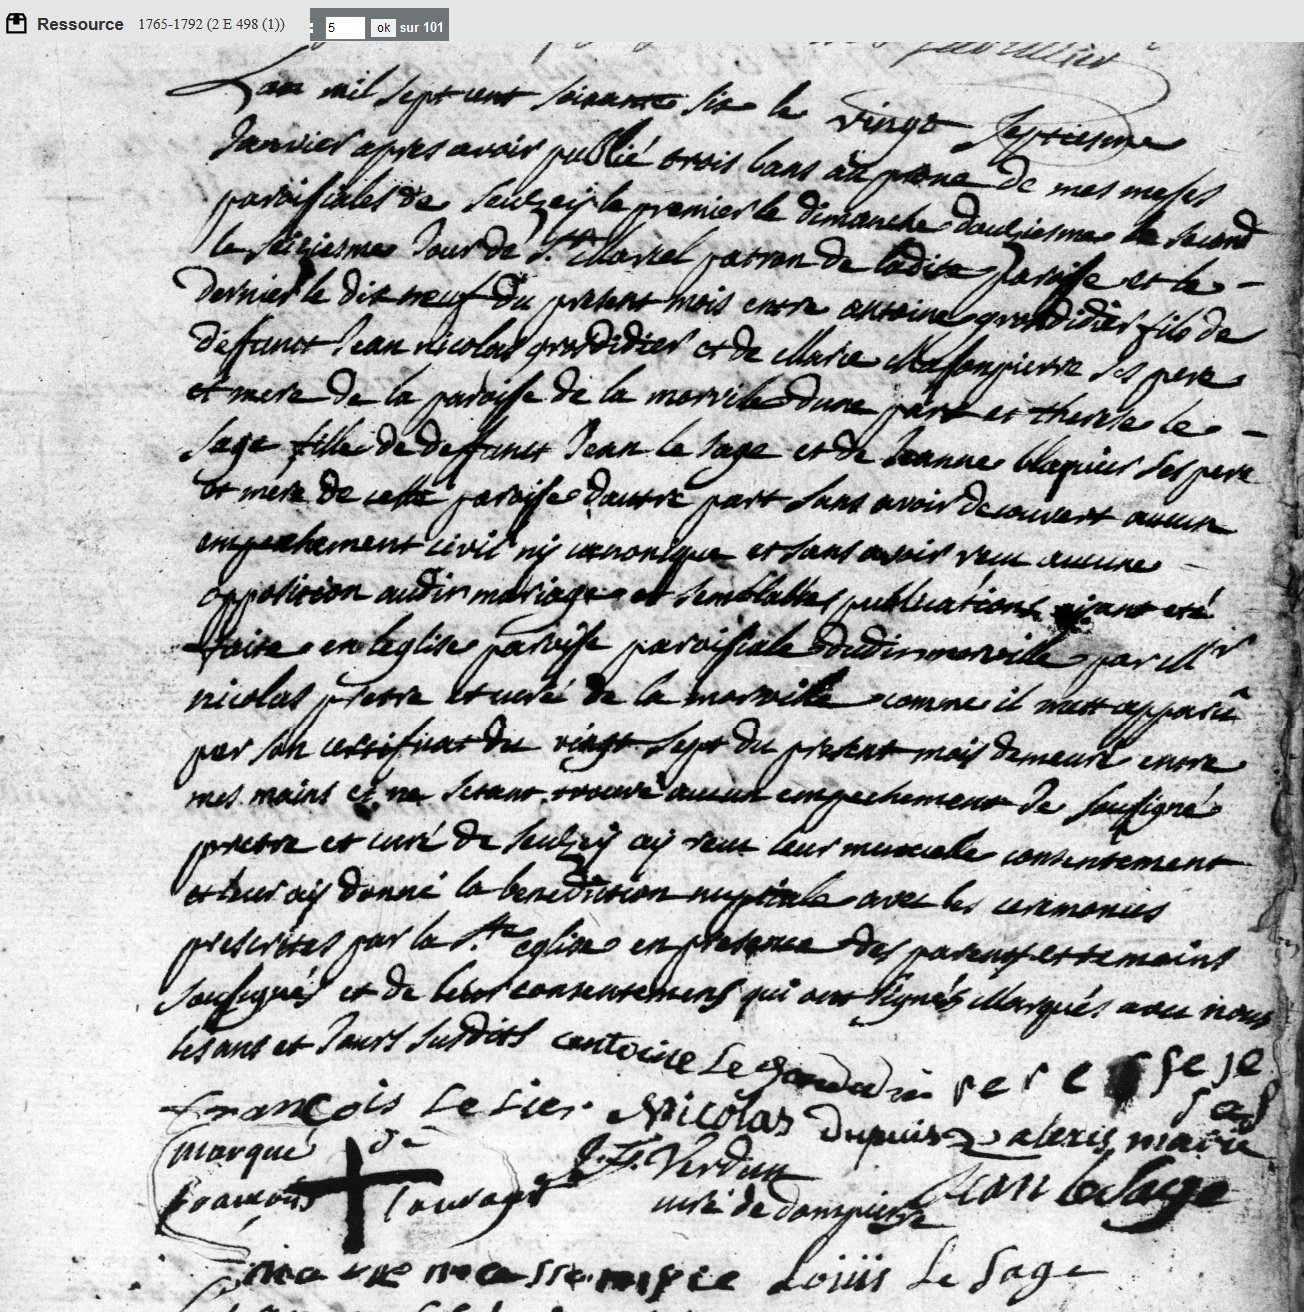 Ressource 1765-1792 (2 E 498 (1)) : 5 ok sur 101
Lan mil sept cent soixante six le vingt septiesme
Janvier apres avoir publié trois bans au prone de mes messes
paroissiales de le premier le dimanche douziesme le second
le seiziesme Jour de St Marcel patron de ladite paroisse et le -
dernier le dit neuf du present mois entre antoine grosdidier fils de
deffunct Jean nicolas grosdidier et de Marie Massonpierre ses pere
et mere de la paroisse de la morville dune part et therese le -
Sage fille de deffunct Jean le Sage et de Jeanne ses pere
et mere de cette paroisse dautre part sans avoir decouvert aucun
empechement civil ny canonique et sans avoir reçu aucune
opposition audit mariage et semblables publications ayant eté
faite en leglise paroisse paroissiale dudit morville par Mr
nicolas pretre et curé de la morville comme il mest apparû
par son certificat du vingt sept du present mois demeuré entre
mes mains et ne setant trouvé aucun empechement Je soussigné
pretre et curé de ay reçu leur mutuelle consentement
et leur ay donné la benediction nuptiale avec les ceremonies
prescrites par la Ste eglise en presence des parents et temoins
soussignés et de leur consentement qui ont signés Marqués avec nous
les ans et Jours susdits antoine Le
François Le Nicolas Dupuis alexis
marque de J. F. Verdun Jean le Sage
François curé de dompierre
Louis Le Sage